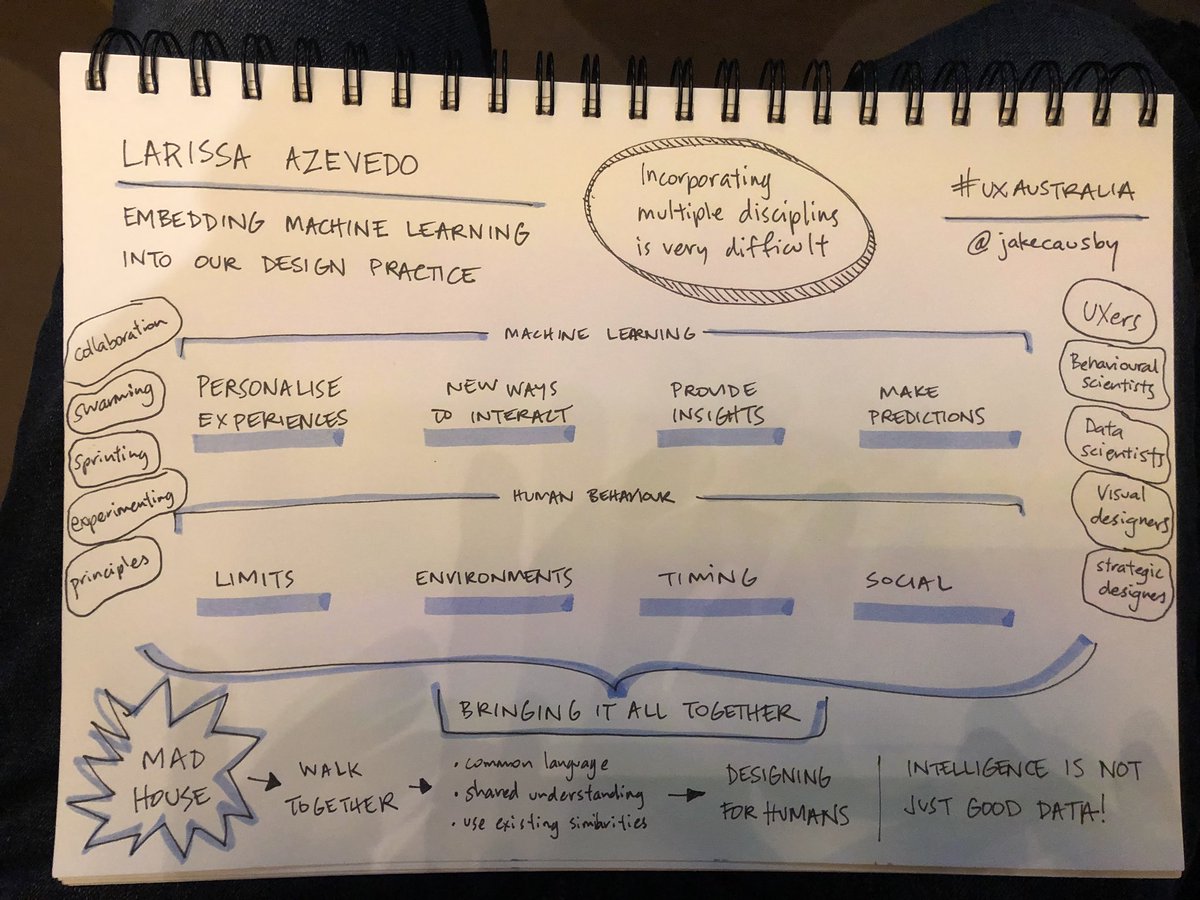 LARISSA AZEVEDO
EMBEDDING MACHINE LEARNING
INTO OUR DESIGN PRACTICE
Incorporating
multiple disciplins
is very difficult
#UXAUSTRALIA
@jakecausby
collaboration
swarming
sprinting
experimenting
principles
MACHINE LEARNING
PERSONALISE
EXPERIENCES
NEW WAYS
TO INTERACT
PROVIDE
INSIGHTS
MAKE
PREDICTIONS
HUMAN BEHAVIOUR
LIMITS
ENVIRONMENTS
TIMING
SOCIAL
UXers
Behavioural
scientists
Data
scientists
Visual
designers
strategic
designers
BRINGING IT ALL TOGETHER
MAD
HOUSE
WALK
TOGETHER
• common language
• shared understanding
• use existing similarities
DESIGNING
FOR HUMANS
INTELLIGENCE IS NOT
JUST GOOD DATA!